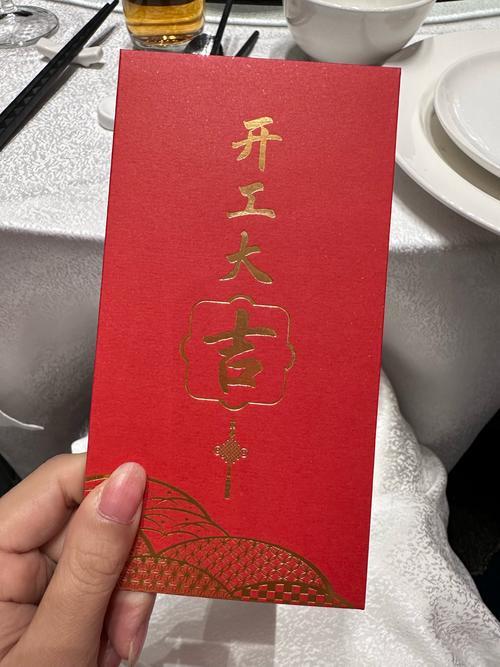 开工大吉